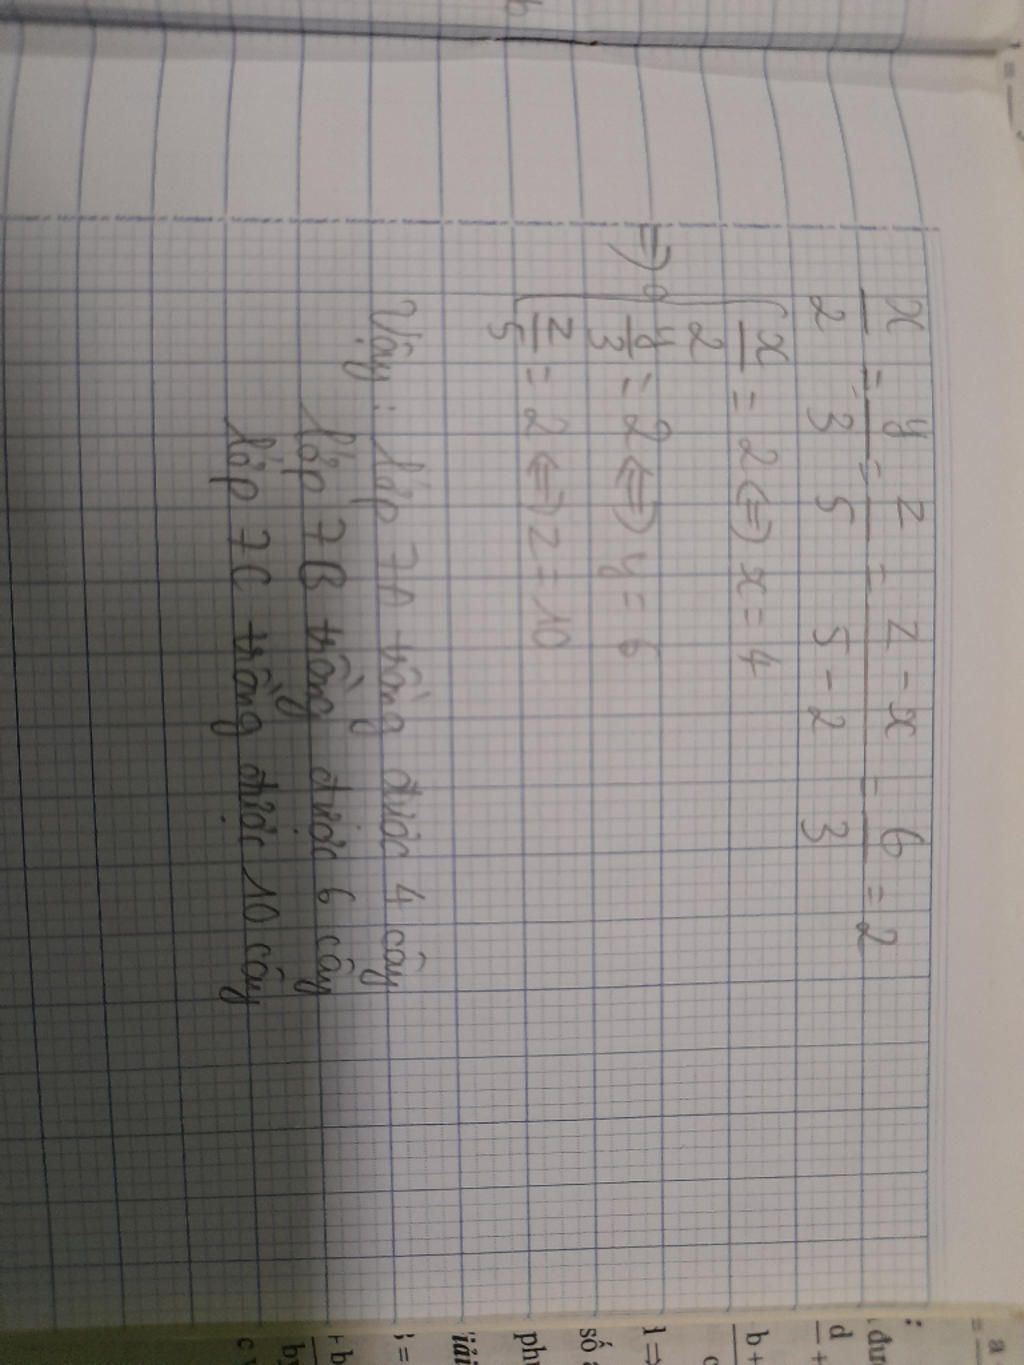 x/2 = y/3 = z/5 = z - x/5 - 2 = 6/3 = 2
=> { x/2 = 2 <=> x = 4
y/3 = 2 <=> y = 6
z/5 = 2 <=> z = 10
Vậy: lớp 7A trồng được 4 cây
lớp 7B trồng được 6 cây
lớp 7C trồng được 10 cây